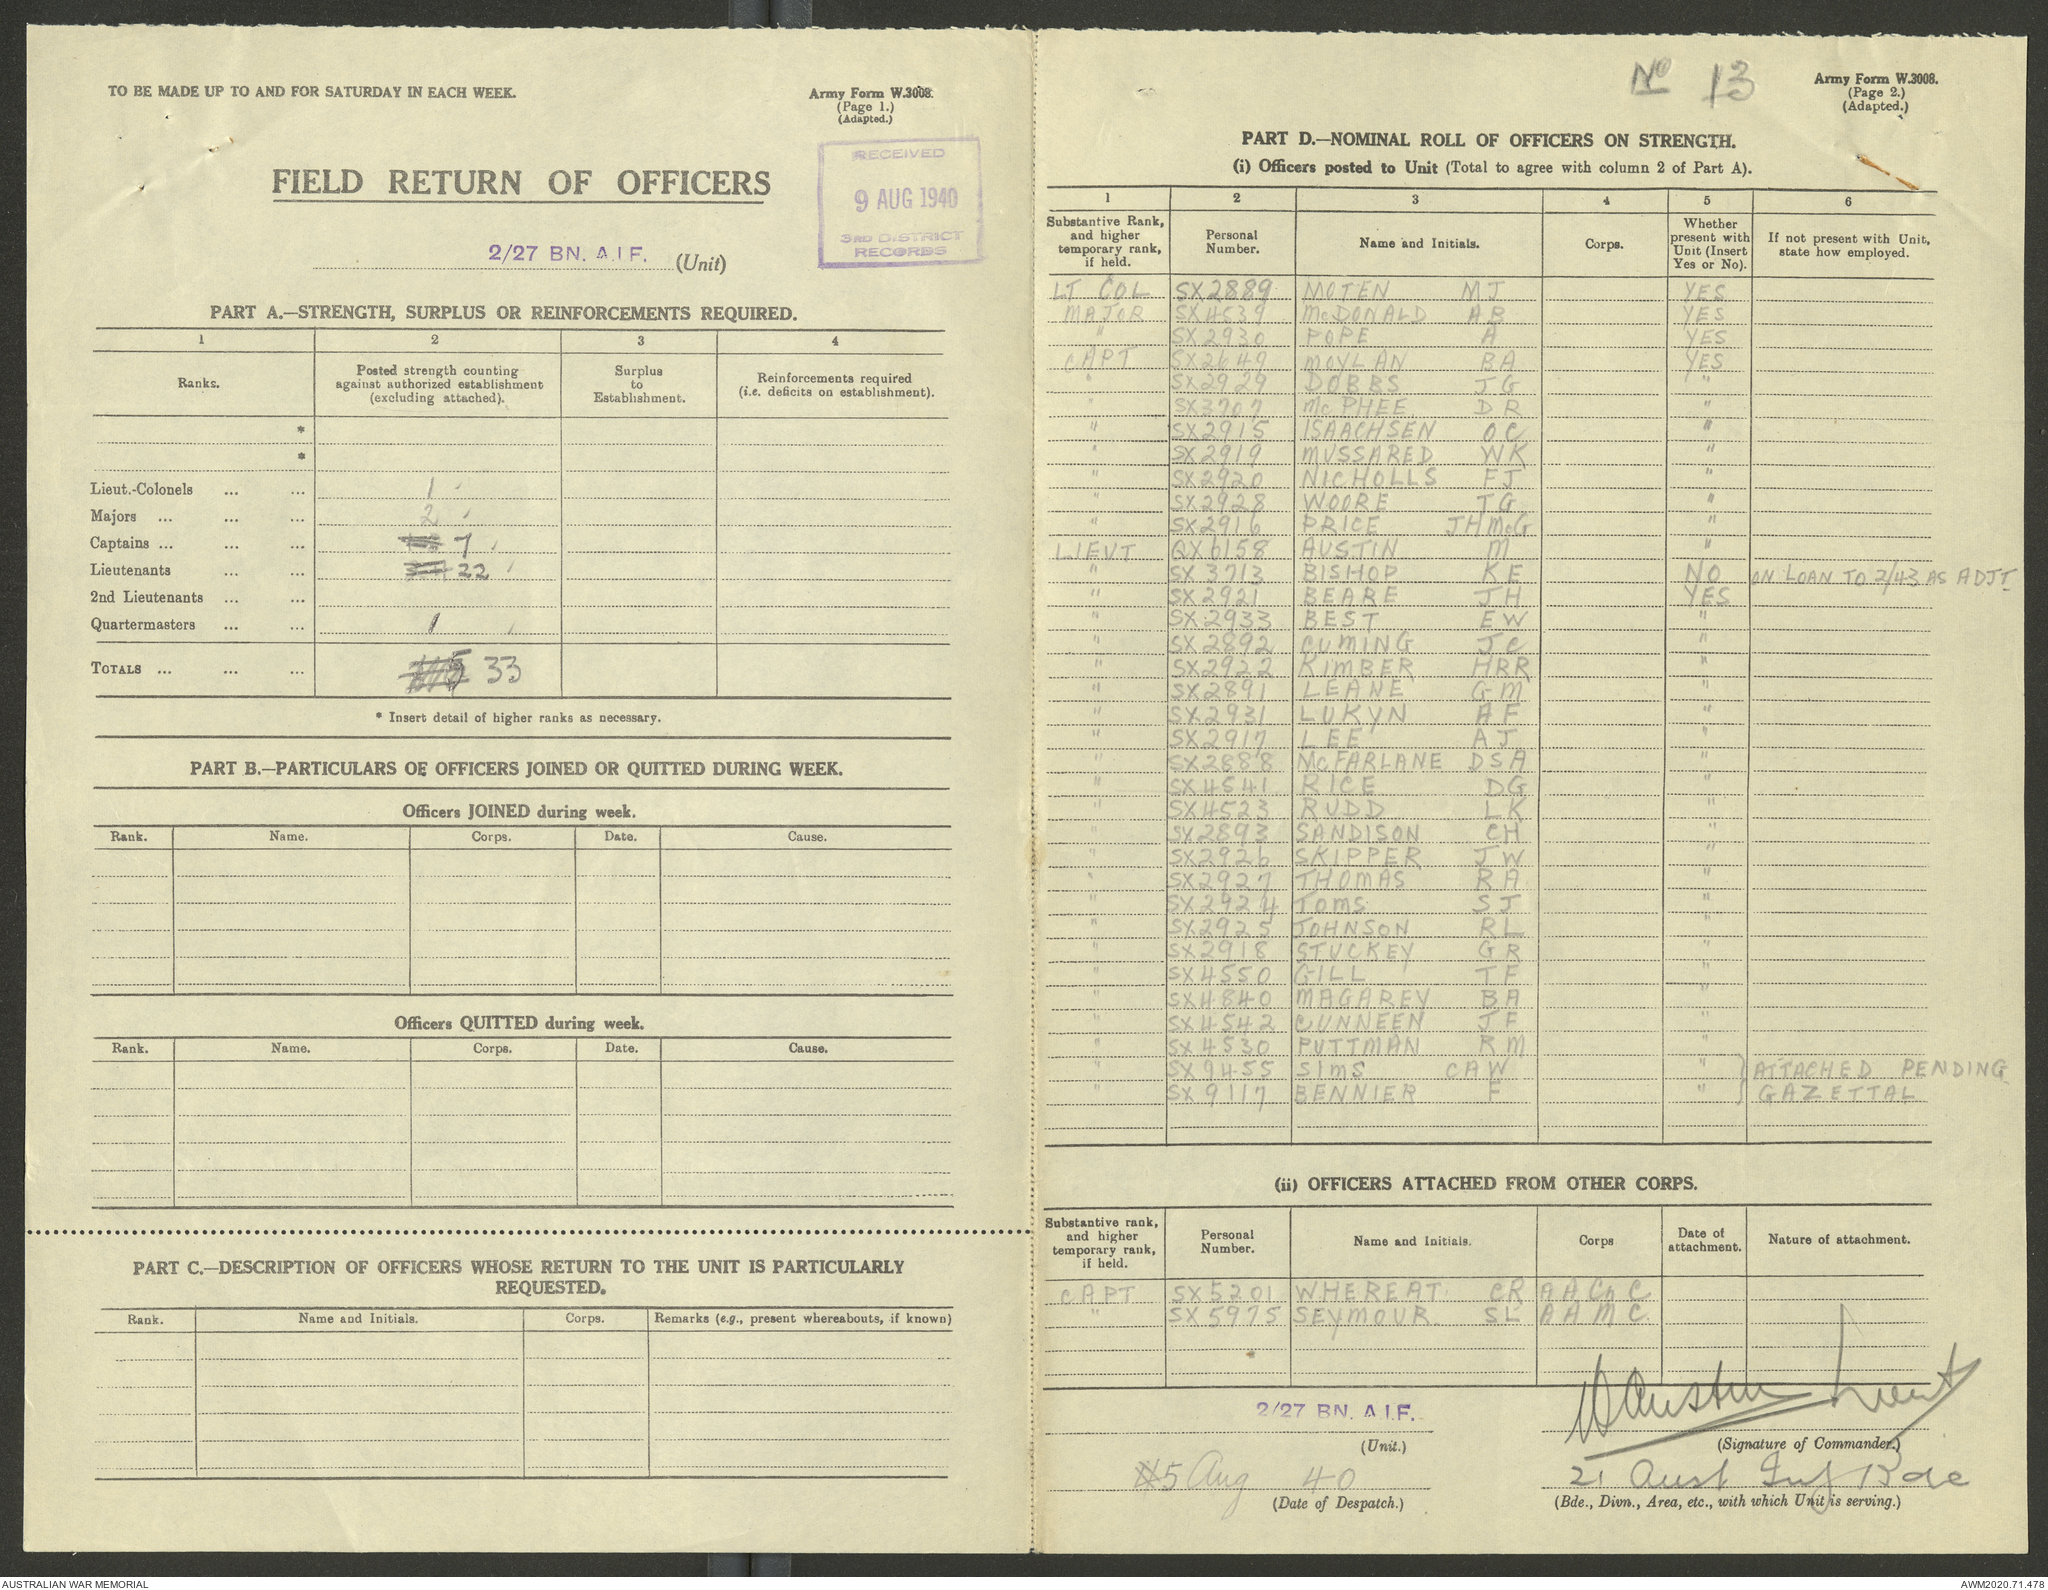 TO BE MADE UP TO AND FOR SATURDAY IN EACH WEEK.
Army Form W.3008.
(Page 1.)
(Adapted.)
FIELD RETURN OF OFFICERS
RECEIVED
9 AUG 1940
3RD DISTRICT
RECORDS
2/27 BN. A.I.F. (Unit)
PART A.—STRENGTH, SURPLUS OR REINFORCEMENTS REQUIRED.
1 2 3 4
Ranks. Posted strength counting against authorized establishment (excluding attached). Surplus to Establishment. Reinforcements required (i.e. deficits on establishment).
*
*
Lieut.-Colonels ... ... 1
Majors ... ... ... 2
Captains ... ... ... 7
Lieutenants ... ... 22
2nd Lieutenants ... ...
Quartermasters ... ... 1
TOTALS ... ... ... 33
* Insert detail of higher ranks as necessary.
PART B.—PARTICULARS OF OFFICERS JOINED OR QUITTED DURING WEEK.
Officers JOINED during week.
Rank. Name. Corps. Date. Cause.
Officers QUITTED during week.
Rank. Name. Corps. Date. Cause.
PART C.—DESCRIPTION OF OFFICERS WHOSE RETURN TO THE UNIT IS PARTICULARLY
REQUESTED.
Rank. Name and Initials. Corps. Remarks (e.g., present whereabouts, if known)
No 13
Army Form W.3008.
(Page 2.)
(Adapted.)
PART D.—NOMINAL ROLL OF OFFICERS ON STRENGTH.
(i) Officers posted to Unit (Total to agree with column 2 of Part A).
1 2 3 4 5 6
Substantive Rank, and higher temporary rank, if held. Personal Number. Name and Initials. Corps. Whether present with Unit (Insert Yes or No). If not present with Unit, state how employed.
LT COL SX2889 MOTEN MJ YES
MAJOR SX4539 McDONALD AB YES
" SX2930 POPE A YES
CAPT SX2649 MOYLAN BA YES
" SX2929 DOBBS JG "
" SX3707 McPHEE DR "
" SX2915 ISAACHSEN OC "
" SX2919 MUSSARED WK "
" SX2920 NICHOLLS FJ "
" SX2928 WOORE TG "
" SX2916 PRICE JHMcG "
LIEUT QX6158 AUSTIN M "
" SX3713 BISHOP KE NO ON LOAN TO 2/43 AS ADJT
" SX2921 BEARE JH YES
" SX2933 BEST EW "
" SX2892 CUMING JC "
" SX2922 KIMBER HRR "
" SX2891 LEANE GM "
" SX2931 LUKYN AF "
" SX2917 LEE AJ "
" SX2888 McFARLANE DSA "
" SX4541 RICE DG "
" SX4523 RUDD LK "
" SX2893 SANDISON CH "
" SX2926 SKIPPER JW "
" SX2927 THOMAS RA "
" SX2924 TOMS SJ "
" SX2925 JOHNSON RL "
" SX2918 STUCKEY GR "
" SX4550 GILL TF "
" SX4840 MAGAREY BA "
" SX4542 CUNNEEN JF "
" SX4530 PUTTMAN RM "
" SX9455 SIMS CAW " ATTACHED PENDING
" SX9117 BENNIER F " GAZETTAL
(ii) OFFICERS ATTACHED FROM OTHER CORPS.
Substantive rank, and higher temporary rank, if held. Personal Number. Name and Initials. Corps Date of attachment. Nature of attachment.
CAPT SX5201 WHEREAT CR AAChC
" SX5975 SEYMOUR SL AAMC
2/27 BN. A.I.F.
(Unit.)
M Austin Lieut
(Signature of Commander.)
5 Aug 40
(Date of Despatch.)
21 Aust Inf Bde
(Bde., Divn., Area, etc., with which Unit is serving.)
AUSTRALIAN WAR MEMORIAL
AWM2020.71.478